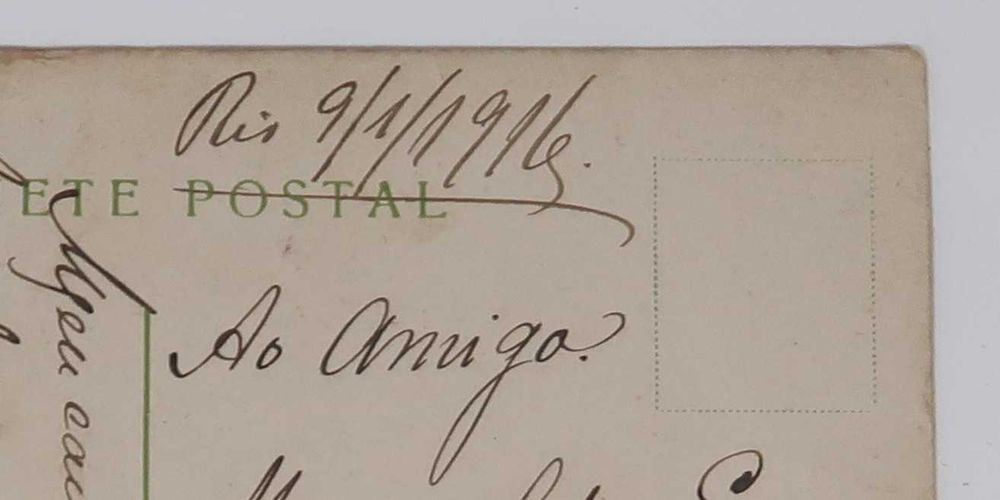 Rio 9/1/1916.
ETE POSTAL
Ao Amigo.
Meu